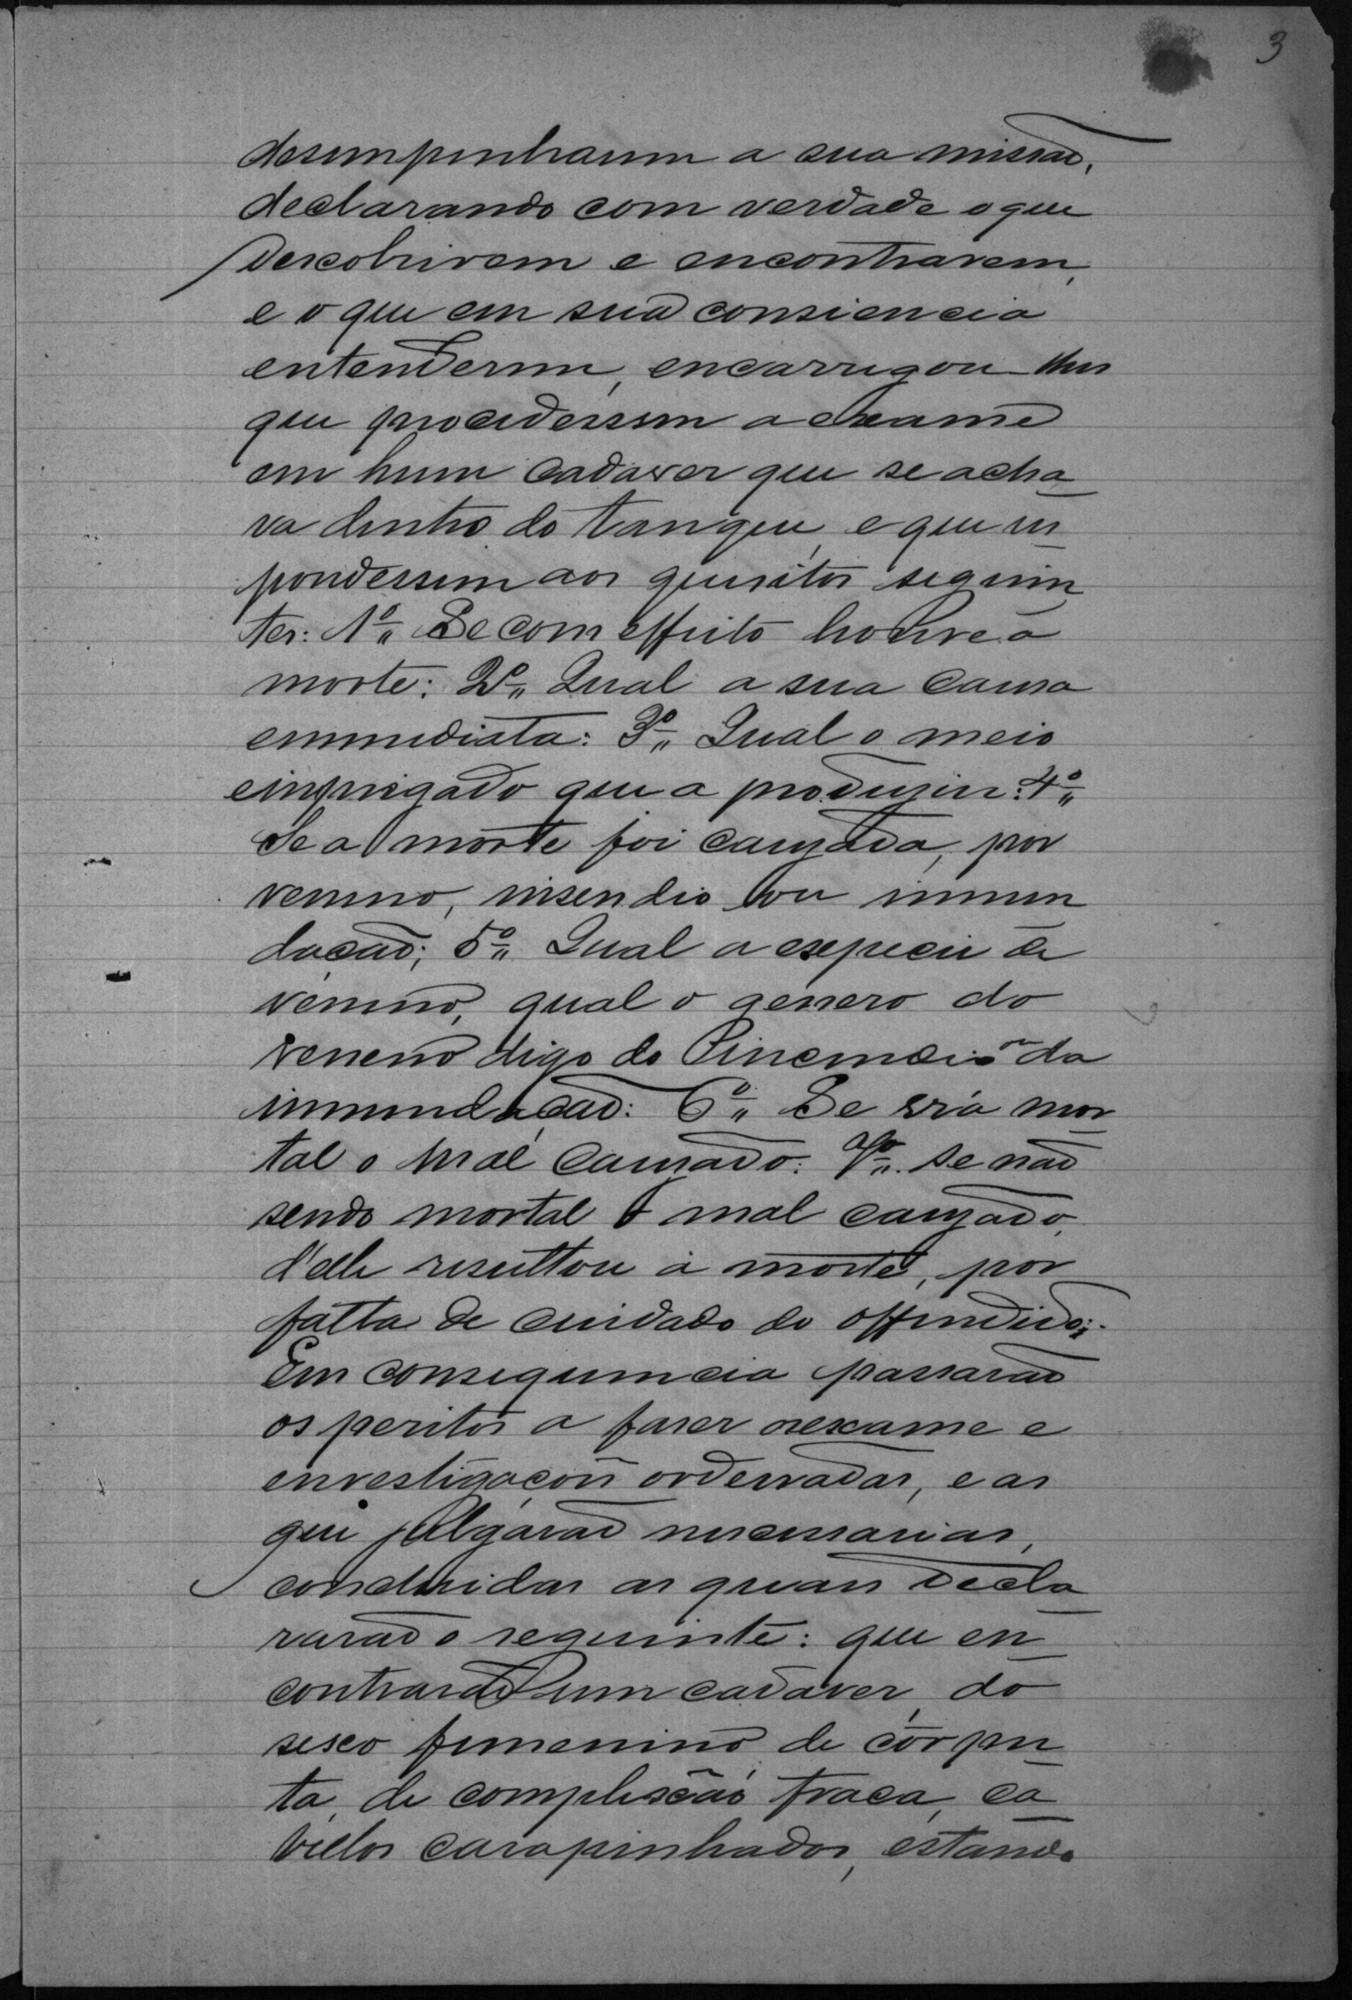 3
desempenharem a sua missão,
declarando com verdade o que
descobrirem e encontrarem,
e o que em sua consiencia
entenderem, encarregou-lhes
que procedessem a exame
em hum cadaver que se acha
va dentro do tanque, e que res
pondessem aos quesitos seguin
tes: 1º„ Se com effeito houve a
morte: 2º„ Qual a sua causa
emmediata: 3º„ Qual o meio
empregado que a produzio: 4º„
Se a morte foi cauzada, por
veneno, insendio ou innun
dacão; 5º„ Qual a especie de
veneno, qual o genero do
veneno digo do incendio ou da
innundacão: 6º„ Se era mor
tal o mal causado: 7º„. Se não
sendo mortal o mal cauzado,
d'elle resultou a morte, por
falta de cuidado do offendido;.
Em consequencia passarão
os peritos a faser o exame e
envestigaçoñ ordenadas, e as
que julgarão necessarias,
concluidas as quaes decla
rarão o seguinte: que en
contrarão um cadaver, do
sexo femenino, de côr pre
ta, de complexcão fraca, ca
bellos carapinhados, estando